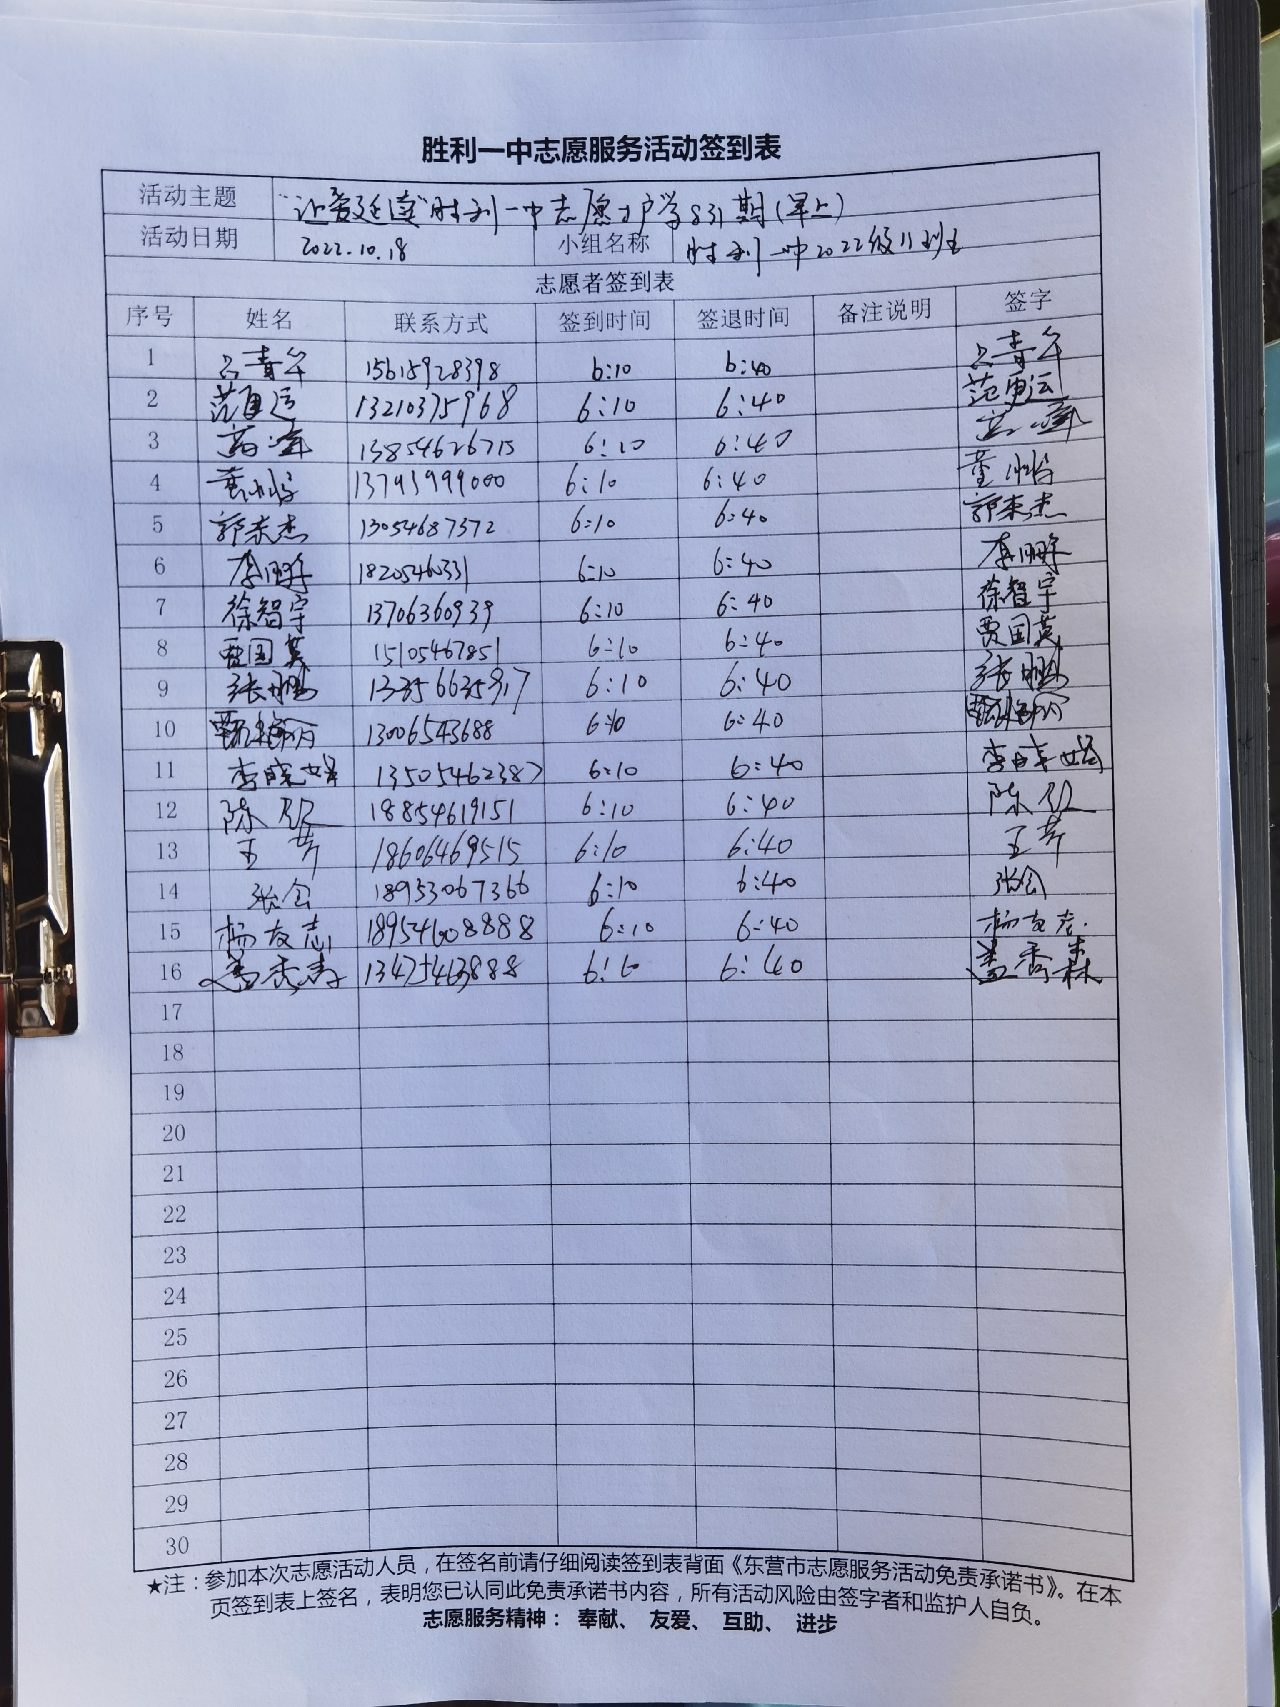 胜利一中志愿服务活动签到表
活动主题 "让爱延续"胜利一中志愿护学831期(早上)
活动日期 2022.10.18 小组名称 胜利一中2022级11班
志愿者签到表
序号 姓名 联系方式 签到时间 签退时间 备注说明 签字
1 15615928398 6:10 6:40
2 范勇运 13210375968 6:10 6:40 范勇运
3 13854626715 6:10 6:40
4 13793999000 6:10 6:40
5 郭来杰 13054687372 6:10 6:40 郭来杰
6 李鹏 18205460331 6:10 6:40 李鹏
7 徐智宇 13706360939 6:10 6:40 徐智宇
8 贾国英 15105467851 6:10 6:40 贾国英
9 张鹏 13356635917 6:10 6:40 张鹏
10 13006543688 6:10 6:40
11 李晓 13505462387 6:10 6:40 李晓
12 陈 18854619151 6:10 6:40 陈
13 王芳 18606469515 6:10 6:40 王芳
14 张会 18953067366 6:10 6:40 张会
15 杨友志 18954608888 6:10 6:40 杨友志
16 盖秀森 13475463888 6:10 6:40 盖秀森
17
18
19
20
21
22
23
24
25
26
27
28
29
30
★注：参加本次志愿活动人员，在签名前请仔细阅读签到表背面《东营市志愿服务活动免责承诺书》。在本
页签到表上签名，表明您已认同此免责承诺书内容，所有活动风险由签字者和监护人自负。
志愿服务精神： 奉献、 友爱、 互助、 进步